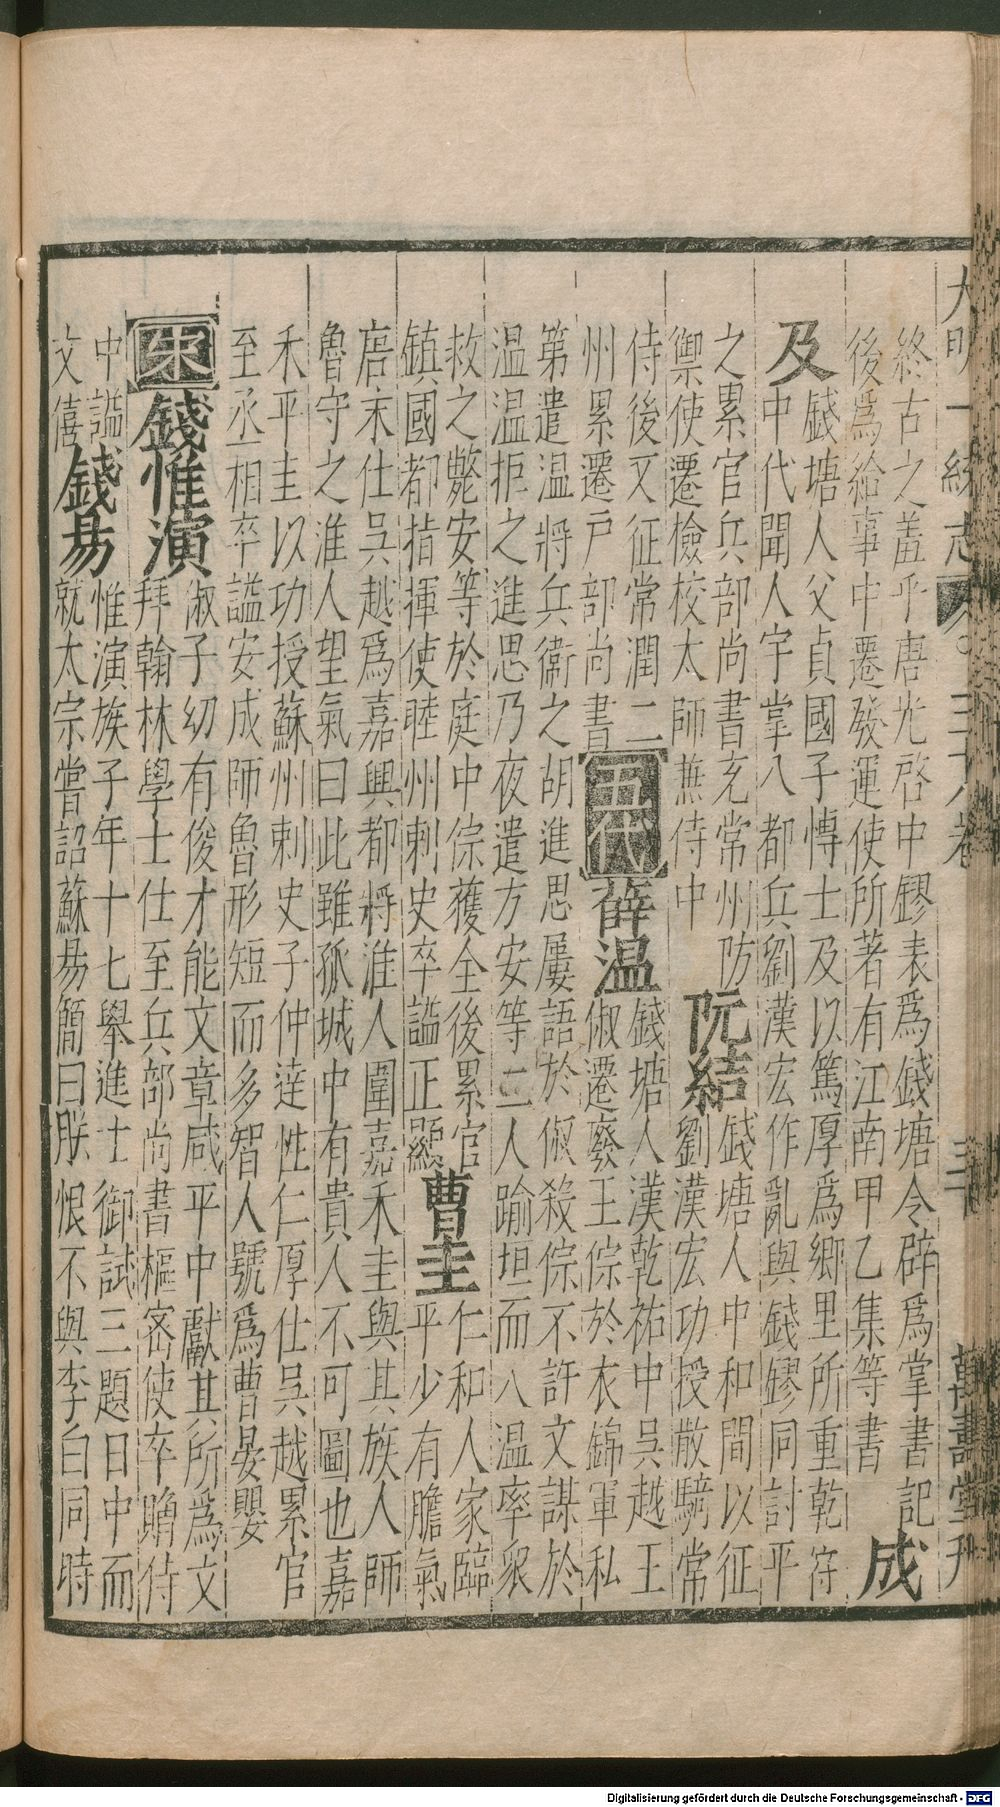 大明一統志 三十八卷 三十 萬壽堂刊
終古之羞乎唐光啓中鏐表爲錢塘令辟爲掌書記
後爲給事中遷發運使所著有江南甲乙集等書 成
及 錢塘人父貞國子博士及以篤厚爲鄉里所重乾符
中代聞人宇掌八都兵劉漢宏作亂與錢鏐同討平
之累官兵部尚書充常州防
禦使遷檢校太師兼侍中 阮結 錢塘人中和間以征
劉漢宏功授散騎常
侍後又征常潤二
州累遷戶部尚書 五代 薛温 錢塘人漢乾祐中吳越王
俶遷廢王倧於衣錦軍私
第遣温將兵衞之胡進思屢語於俶殺倧不許又謀於
温温拒之進思乃夜遣方安等二人踰垣而入温率衆
救之斃安等於庭中倧獲全後累官
鎮國都指揮使睦州刺史卒謚正顯 曹圭 仁和人家臨
平少有膽氣
唐末仕吳越爲嘉興都將淮人圍嘉禾圭與其族人師
魯守之淮人望氣曰此雖孤城中有貴人不可圖也嘉
禾平圭以功授蘇州刺史子仲達性仁厚仕吳越累官
至丞相卒謚安成師魯形短而多智人號爲曹晏嬰
宋 錢惟演 俶子幼有俊才能文章咸平中獻其所爲文
拜翰林學士仕至兵部尚書樞密使卒贈侍
中謚
文僖 錢易 惟演族子年十七舉進士御試三題日中而
就太宗嘗詔蘇易簡曰朕恨不與李白同時
Digitalisierung gefördert durch die Deutsche Forschungsgemeinschaft - DFG